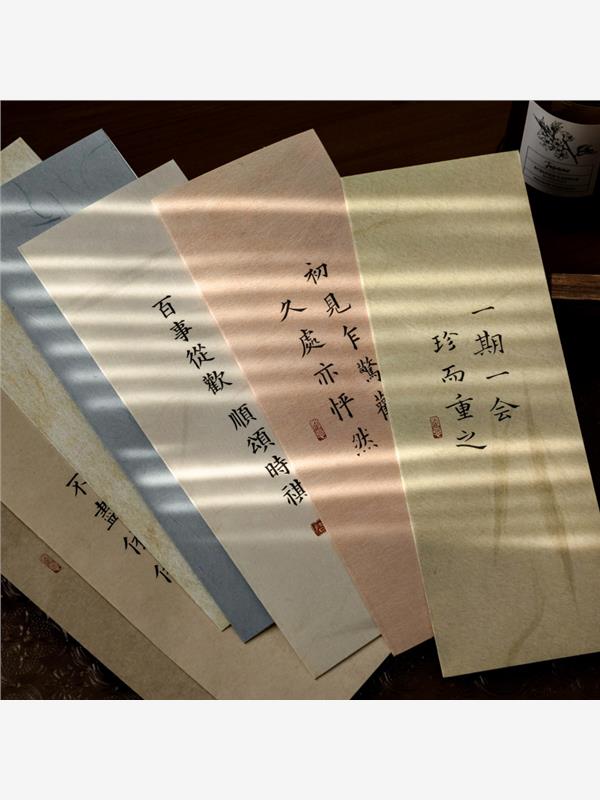 一期一会
珍而重之
初見乍驚歡
久處亦怦然
百事從歡 順頌時祺
不盡